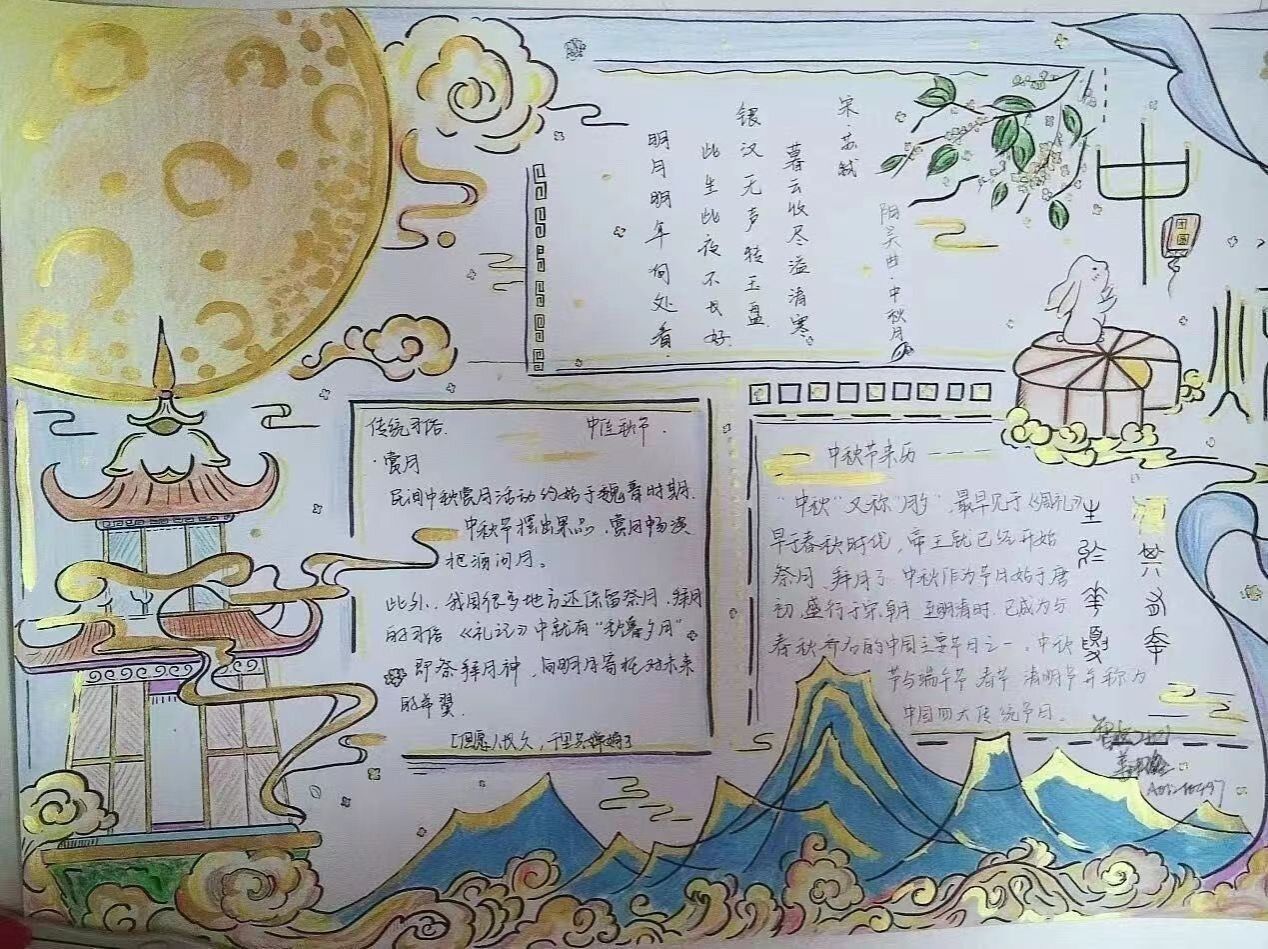 中
秋
团圆
阳关曲·中秋月
宋·苏轼
暮云收尽溢清寒
银汉无声转玉盘
此生此夜不长好
明月明年何处看
传统习俗
·赏月
民间中秋赏月活动约始于魏晋时期.
中秋节摆出果品,赏月畅谈
把酒问月。
此外,我国很多地方还保留祭月,拜月
的习俗《礼记》中就有“秋暮夕月”
即祭拜月神,向明月寄托对未来
的希翼
「但愿人长久,千里共婵娟」
中秋节来历
“中秋”又称“月夕”,最早见于《周礼》
早在春秋时代,帝王就已经开始
祭月 拜月了 中秋作为节日始于唐
初,盛行于宋朝 至明清时,已成为与
春秋齐名的中国主要节日之一。中秋
节与端午节 春节 清明节并称为
中国四大传统节日.
生於華夏